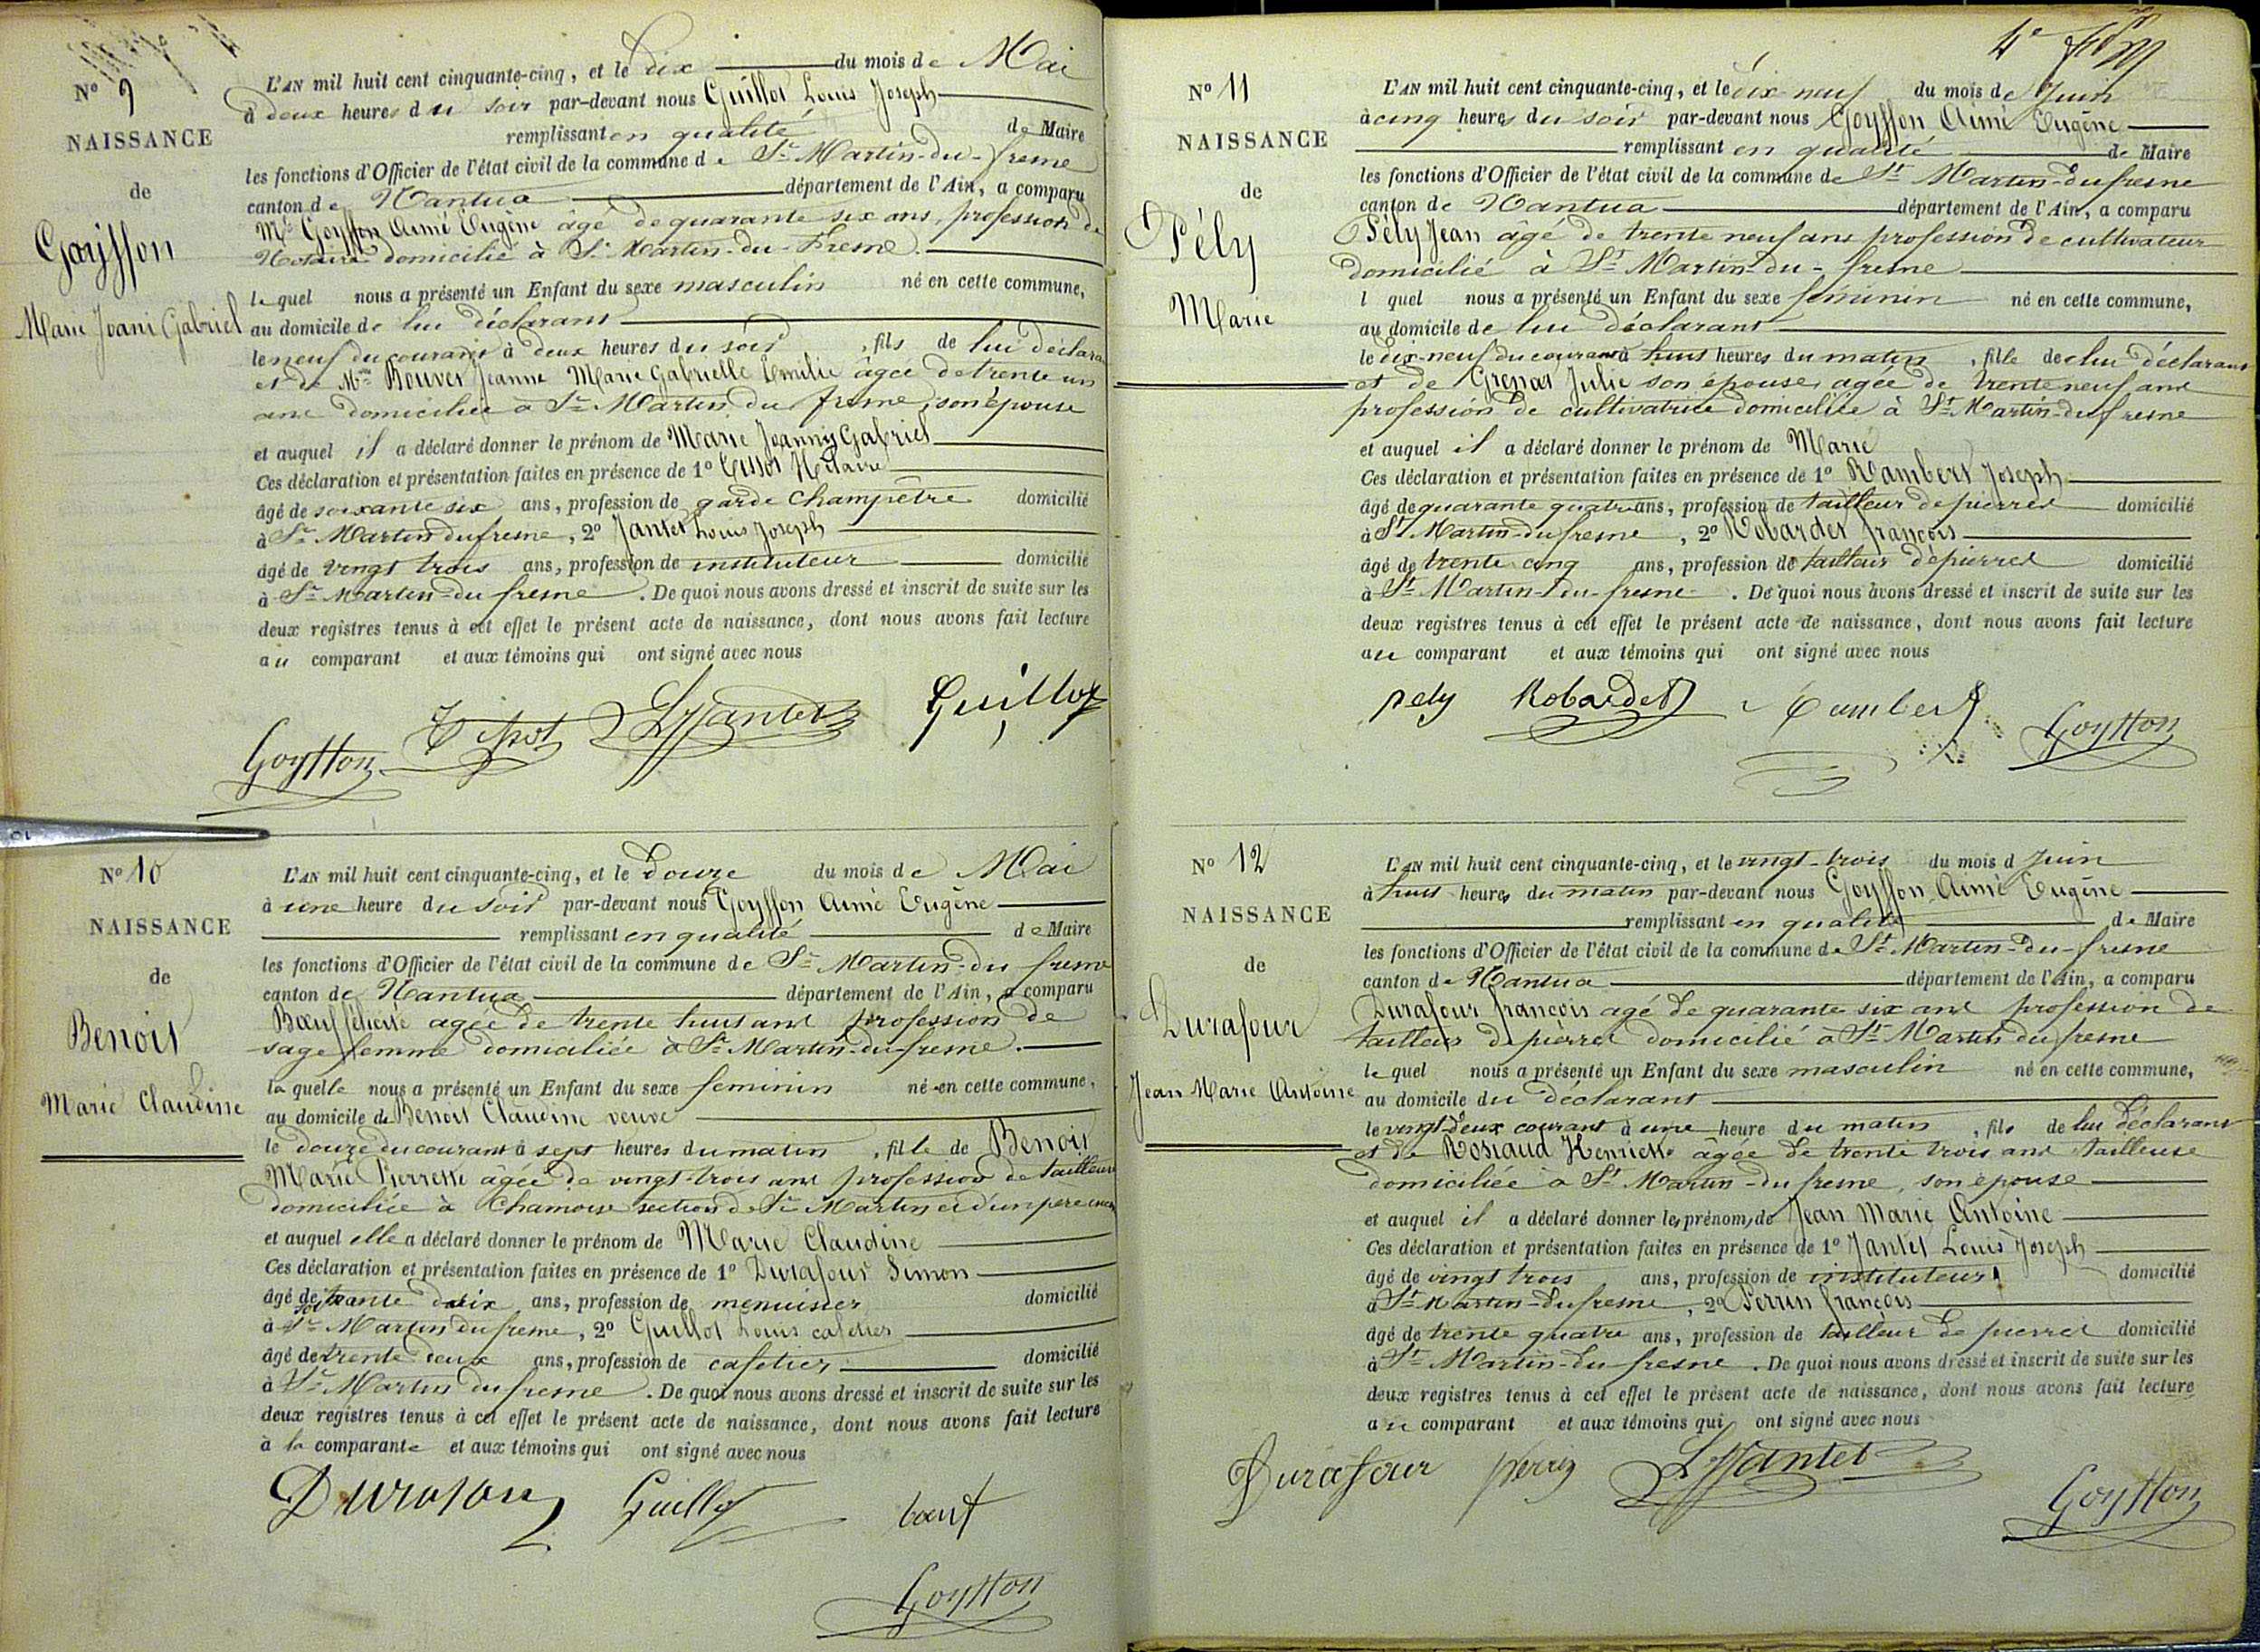 Nº 9
NAISSANCE
de
Goyffon
Marie Joani Gabriel
L'AN mil huit cent cinquante-cinq, et le dix du mois de Mai
à deux heures du soir par-devant nous Guillot Louis Joseph
remplissant en qualité de Maire
les fonctions d'Officier de l'état civil de la commune de St Martin-du-fresne
canton de Nantua département de l'Ain, a comparu
Mr Goyffon Aimé Eugène âgé de quarante six ans, profession de
Notaire domicilié à St Martin-du-Fresne.
lequel nous a présenté un Enfant du sexe masculin né en cette commune,
au domicile de lui déclarant
le neuf du courant à deux heures du soir, fils de lui déclara
et de Mme Bouvet Jeanne Marie Gabrielle Emilie âgée de trente un
ans domiciliée à St Martin du fresne, son épouse
et auquel il a déclaré donner le prénom de Marie Joanny Gabriel
Ces déclaration et présentation faites en présence de 1º Tissot Hilaire
âgé de soixante six ans, profession de garde champêtre domicilié
à St Martin du fresne, 2º Jantet Louis Joseph
âgé de vingt trois ans, profession de instituteur domicilié
à St Martin-du fresne. De quoi nous avons dressé et inscrit de suite sur les
deux registres tenus à cet effet le présent acte de naissance, dont nous avons fait lecture
au comparant et aux témoins qui ont signé avec nous
Goyffon Tissot L J Jantet Guillot
Nº 10
NAISSANCE
de
Benoit
Marie Claudine
L'AN mil huit cent cinquante-cinq, et le Douze du mois de Mai
à une heure du soir par-devant nous Goyffon Aimé Eugène
remplissant en qualité de Maire
les fonctions d'Officier de l'état civil de la commune de St Martin-du fresne
canton de Nantua département de l'Ain, a comparu
Bœuf félicité agée de trente huit ans profession de
sage femme domiciliée à St Martin-du-fresne.
laquelle nous a présenté un Enfant du sexe feminin né en cette commune,
au domicile de Benoit Claudine veuve
le douze du courant à sept heures du matin, fille de Benoit
Marie Pierrette âgée de vingt-trois ans profession de tailleuse
domiciliée à Chamoise section de St Martin et d'un père
et auquel elle a déclaré donner le prénom de Marie Claudine
Ces déclaration et présentation faites en présence de 1º Durafour Simon
âgé de soixante dix ans, profession de menuisier domicilié
à St Martin du fresne, 2º Guillot Louis cafetier
âgé de trente deux ans, profession de cafetier domicilié
à St Martin du fresne. De quoi nous avons dressé et inscrit de suite sur les
deux registres tenus à cet effet le présent acte de naissance, dont nous avons fait lecture
à la comparante et aux témoins qui ont signé avec nous
Durafour Guillot bœuf
Goyffon
4e
Nº 11
NAISSANCE
de
Pély
Marie
L'AN mil huit cent cinquante-cinq, et le dix-neuf du mois de Juin
à cinq heures du soir par-devant nous Goyffon Aimé Eugène
remplissant en qualité de Maire
les fonctions d'Officier de l'état civil de la commune de St Martin-du fresne
canton de Nantua département de l'Ain, a comparu
Pély Jean agé de trente neuf ans profession de cultivateur
domicilié à St Martin-du-fresne
l quel nous a présenté un Enfant du sexe féminin né en cette commune,
au domicile de lui déclarant
le dix-neuf du courant à huit heures du matin, fille de lui déclarant
et de Grepat Julie son épouse, agée de trente neuf ans
profession de cultivatrice domiciliée à St Martin-du fresne
et auquel il a déclaré donner le prénom de Marie
Ces déclaration et présentation faites en présence de 1º Rambert Joseph
âgé de quarante quatre ans, profession de tailleur de pierres domicilié
à St Martin-du fresne, 2º Robardet françois
âgé de trente cinq ans, profession de tailleur de pierres domicilié
à St Martin-du-fresne. De quoi nous avons dressé et inscrit de suite sur les
deux registres tenus à cet effet le présent acte de naissance, dont nous avons fait lecture
au comparant et aux témoins qui ont signé avec nous
pely Robardet Rambert Goyffon
Nº 12
NAISSANCE
de
Durafour
Jean Marie Antoine
L'AN mil huit cent cinquante-cinq, et le vingt-trois du mois d Juin
à huit heures du matin par-devant nous Goyffon Aimé Eugène
remplissant en qualité de Maire
les fonctions d'Officier de l'état civil de la commune de St Martin-du-fresne
canton de Nantua département de l'Ain, a comparu
Durafour françois agé de quarante six ans profession de
tailleur de pierres domicilié à St Martin du fresne
lequel nous a présenté un Enfant du sexe masculin né en cette commune,
au domicile du déclarant
le vingt-deux courant à une heure du matin, fils de lui déclarant
et de Rosiaud Henriette âgée de trente trois ans tailleuse
domiciliée à St Martin-du fresne, son épouse
et auquel il a déclaré donner les prénoms de Jean Marie Antoine
Ces déclaration et présentation faites en présence de 1º Jantet Louis Joseph
âgé de vingt trois ans, profession de instituteur domicilié
à St Martin-du fresne, 2º Perrin françois
âgé de trente quatre ans, profession de tailleur de pierres domicilié
à St Martin-du fresne. De quoi nous avons dressé et inscrit de suite sur les
deux registres tenus à cet effet le présent acte de naissance, dont nous avons fait lecture
au comparant et aux témoins qui ont signé avec nous
Durafour perrin L J Jantet Goyffon